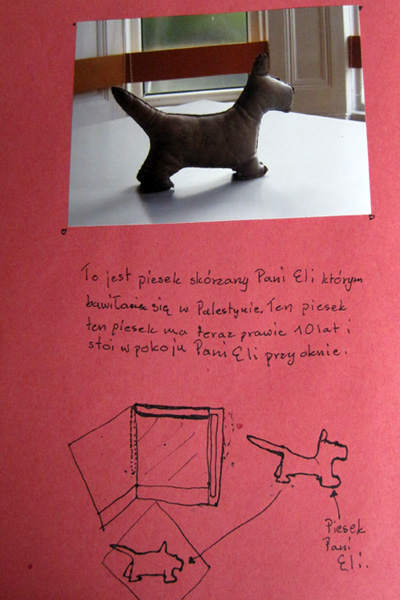 To jest piesek skórzany Pani Eli którym
bawiła się w Palestynie. Ten piesek
ten piesek ma teraz prawie 10 lat i
stoi w pokoju Pani Eli przy oknie.
Piesek
Pani
Eli.